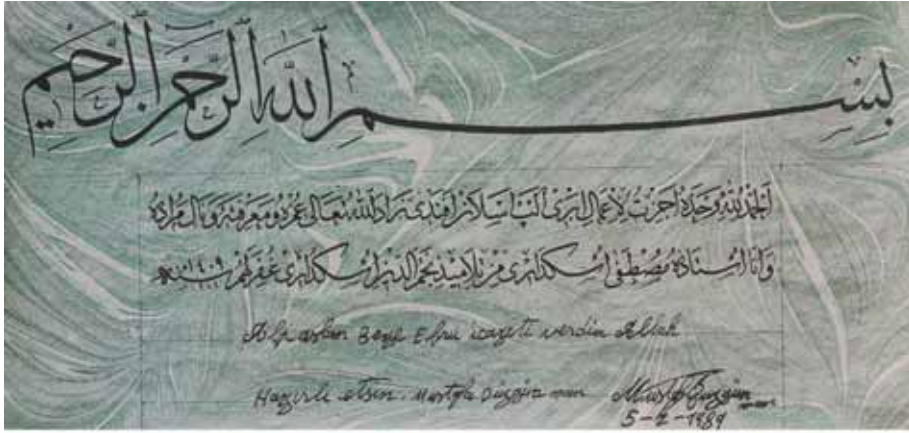 بِسْمِ اللّٰهِ الرَّحْمٰنِ الرَّحِيمِ
اَلْحَمْدُ لِلّٰهِ وَحْدَهُ اَجَزْتُ لِاِعْمَالِ اَبْرِى اَلْپ اَرْسلان اَفَنْدِى زَادَ اللّٰهُ تَعَالٰى عُمْرَهُ وَمَعْرِفَتَهُ وَنَالَ مُرَادَهُ
وَاَنَا اُسْتَادُهُ مُصْطَفٰى اُسْكُدَارِى مِنْ تَلَامِيذِ نَجْمِ الدِّينِ اُسْكُدَارِى غُفِرَ لَهُمْ ١٤٠٩
Alparslan Beye Ebru icazeti verdim Allah
Hayırlı etsin. Mustafa Düzgünman
5-2-1989